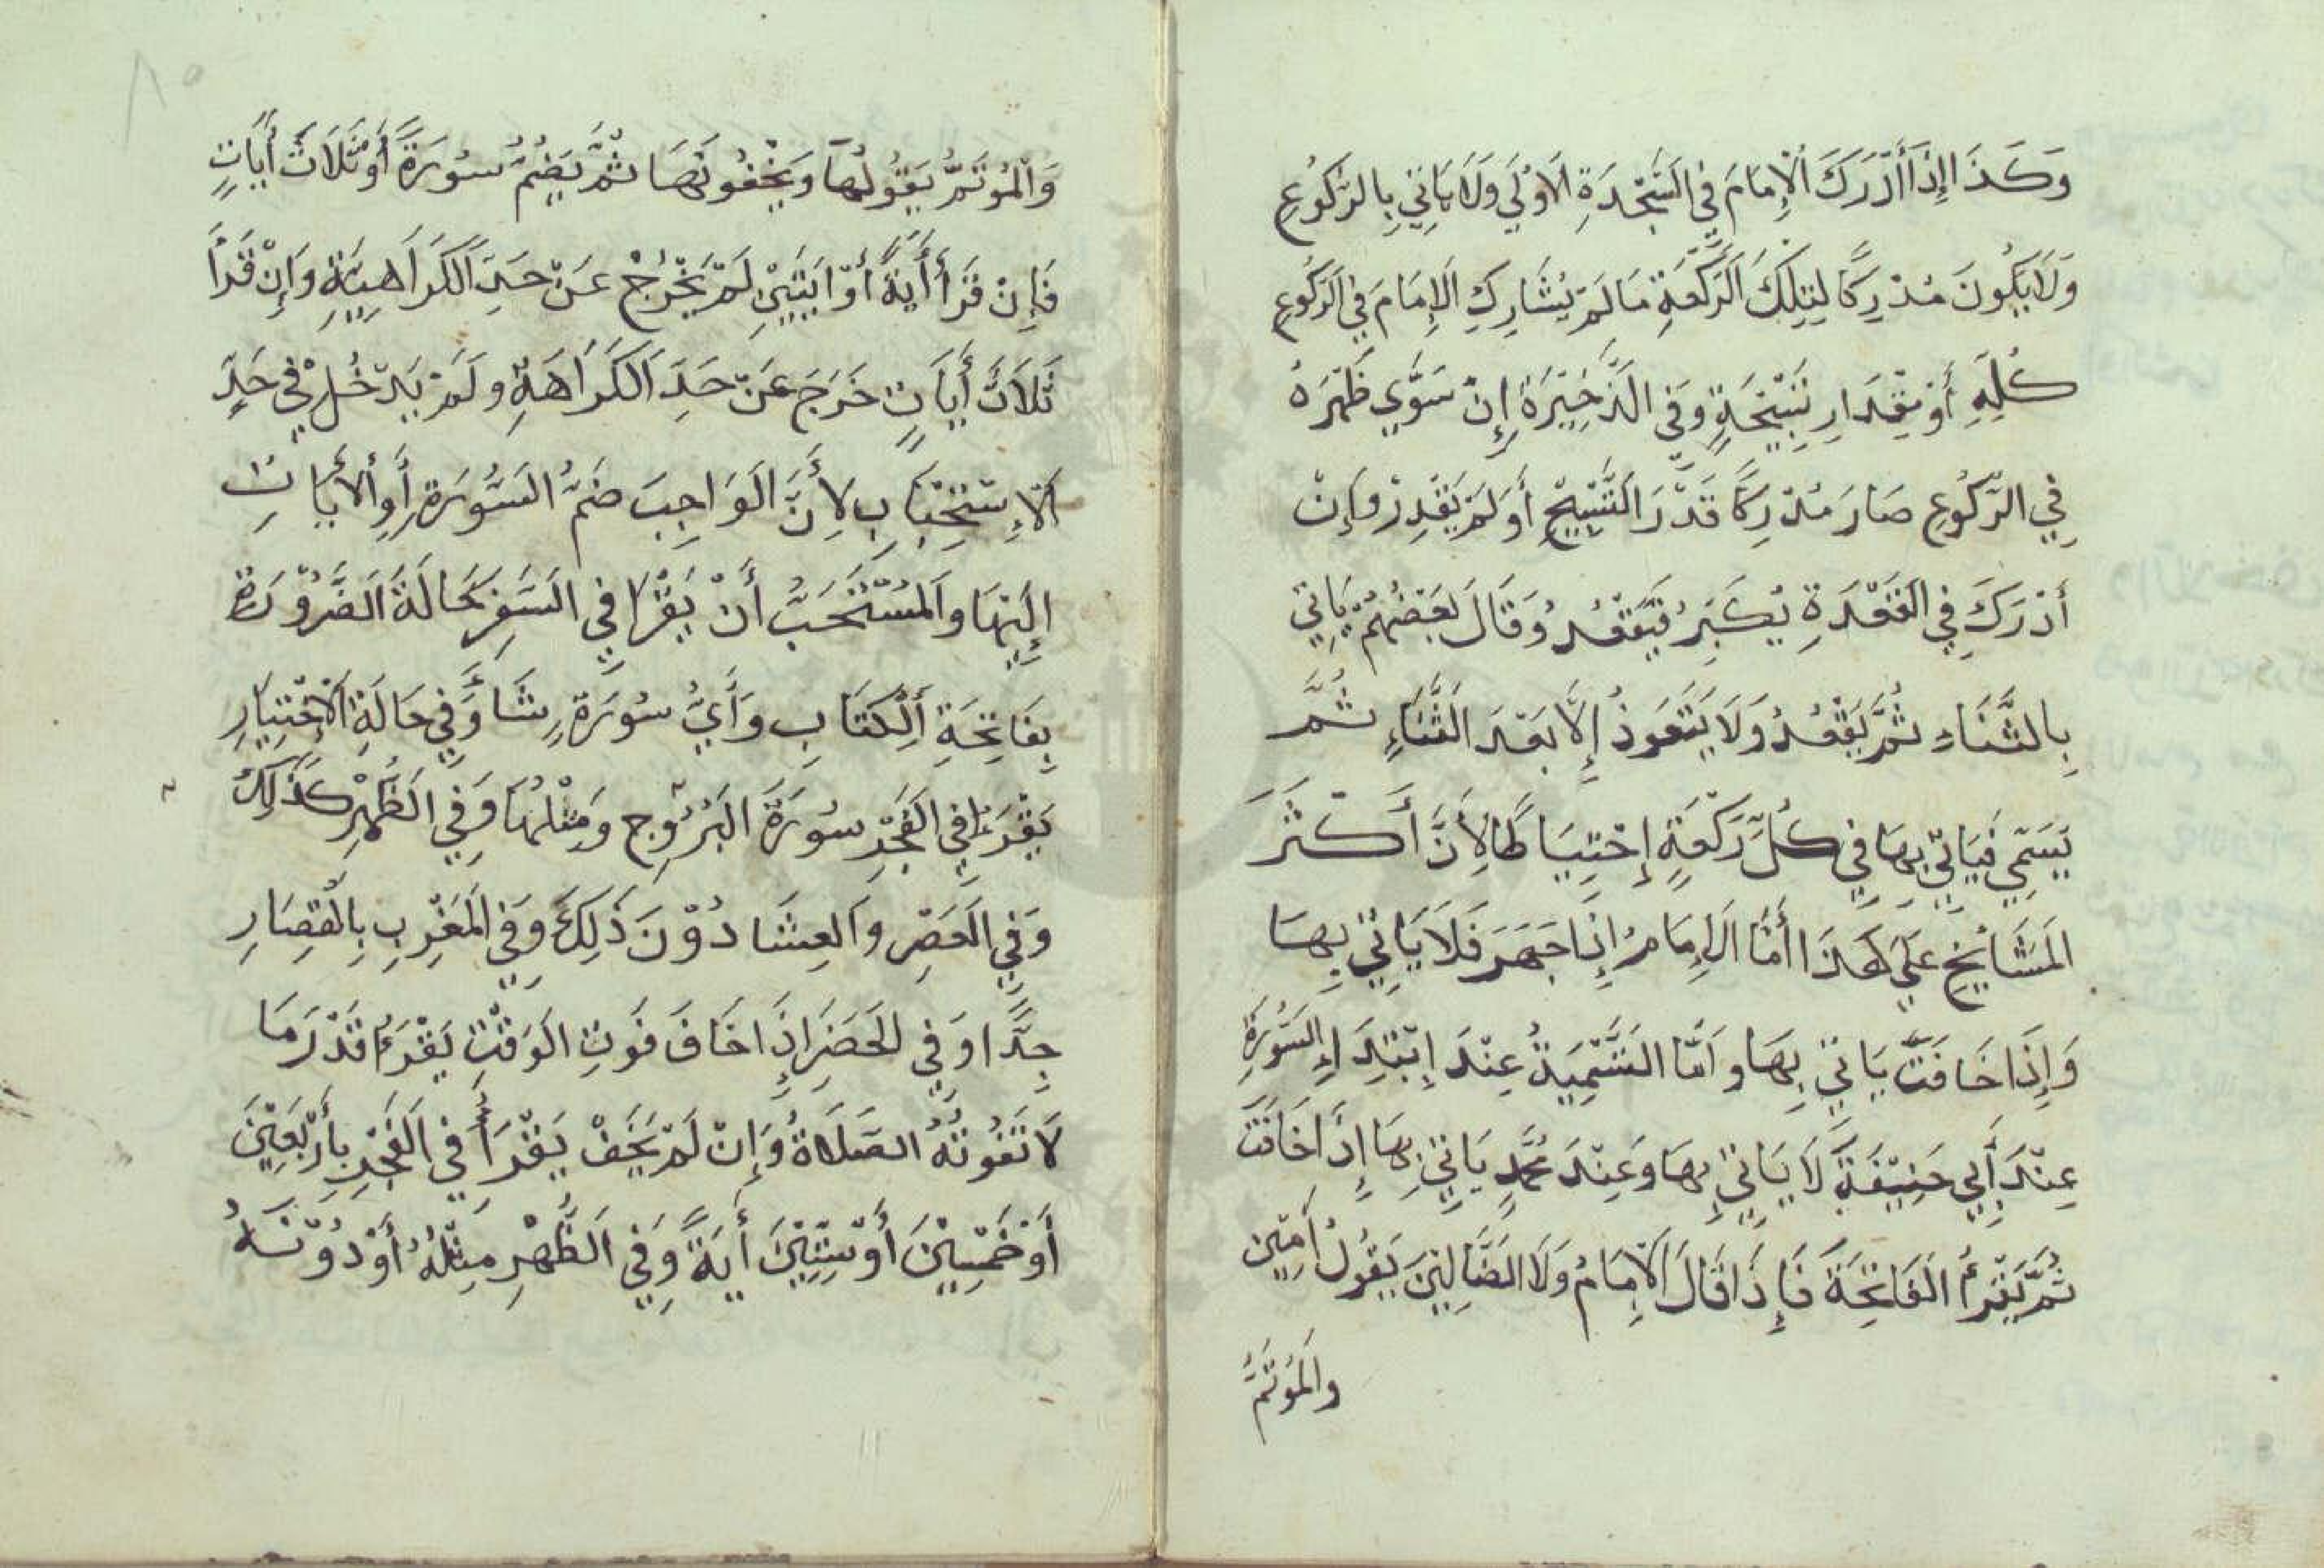 وَكَذَا إِذَا أَدْرَكَ الْإِمَامَ فِي السَّجْدَةِ الْاُولَي وَلَا يَاتِي بِالرُّكُوعِ
وَلَا يَكُونَ مُدْرِكًا لِتِلْكَ الرَّكْعَةِ مَا لَمْ يُشَارِكِ الْإِمَامَ فِي الرُّكُوعِ
كُلِّهِ أَوْ مِقْدَارِ تَسْبِيْحَةٍ وَفِي الذَّخِيْرَةِ إِنْ سَوَّي ظَهْرَهُ
فِي الرُّكُوعِ صَارَ مُدْرِكًا قَدَّرَ التَّسْبِيْحِ أَوْ لَمْ يَقْدِرْ وَإِنْ
أَدْرَكَ فِي الْقَعْدَةِ يُكَبِّرُ فَيَقْعُدُ وَقَالَ بَعْضُهُمْ يَاتِي
بِالثَّنَاءِ ثُمَّ يَقْعُدُ وَلَا يَتَعَوَذُ إِلَّا بَعْدَ الثَّنَاءِ ثُمَّ
يُسَمِّي فَيَاتِي بِهَا فِي كُلِّ رَكْعَةٍ إِحْتِيَاطًا لِأَنَّ أَكْثَرَ
الْمَشَايِخِ عَلَي هَذَا أَمَّا الْإِمَامُ إِذَا جَهَرَ فَلَا يَاتِي بِهَا
وَإِذَا خَافَتَ يَاتِي بِهَا وَاَمَّا التَّسْمِيَةُ عِنْدَ اِبْتِدَاءِ السُّوْرَةِ
عِنْدَ أَبِي حَنِيْفَةَ لَا يَاتِي بِهَا وَعِنْدَ مُحَمَّدٍ يَاتِي بِهَا إِذَا خَافَتَ
ثُمَّ يَقْرَأُ الْفَاتِحَةَ فَإِذَا قَالَ الْإِمَامُ وَلَا الضَّالِّيْنَ يَقُولُ اَمِيْن
وَالْمُؤْتَمُّ
٨٥
وَالْمُؤْتَمُّ يَقُولُهَا وَيُخْفُونَهَا ثُمَّ يَضُمُّ سُورَةً أَوْ ثَلَاثَ أَيَاتٍ
فَإِنْ قَرَأَ أَيَةً أَوْ اَيَتَيْنِ لَمْ يَخْرُجْ عَنْ حَدِّ الْكَرَاهِيَةِ وَإِنْ قَرَأَ
ثَلَاثَ أَيَاتٍ خَرَجَ عَنْ حَدِّ الْكَرَاهَةِ وَلَمْ يَدْخُلْ فِي حَدِّ
الْإِسْتِحْبَابِ لِأَنَّ الْوَاجِبَ ضَمُّ السُّورَةِ أَوِ الْأَيَاتِ
إِلَيْهَا وَالْمُسْتَحَبُّ أَنْ يَقْرَا فِي السَّفَرِ حَالَةَ الضَّرُوْرَةِ
بِفَاتِحَةِ الْكِتَابِ وَأَيُّ سُورَةٍ شَاءَ وَفِي حَالَةِ الْاِخْتِيَارِ
يَقْرَءُ فِي الْفَجْرِ سُورَةَ الْبُرُوجِ وَمِثْلُهَا وَفِي الظُّهْرِ كَذَلِكَ
وَفِي الْعَصْرِ وَالْعِشَا دُوْنَ ذَلِكَ وَفِي الْمَغْرِبِ بِالْقِصَارِ
جِدًّا وَفِي الْحَضَرِ إِذَا خَافَ فَوْتِ الْوَقْتِ يَقْرَءُ قَدْرَ مَا
لَا تَفُوتُهُ الصَّلَاةُ وَإِنْ لَمْ يَخَفْ يَقْرَأُ فِي الْفَجْرِ بِأَرْبَعِيْنَ
أَوْ خَمْسِيْنَ أَوْ سِتِّيْنَ أَيَةً وَفِي الظُّهْرِ مِثْلُهُ أَوْ دُوْنَهُ